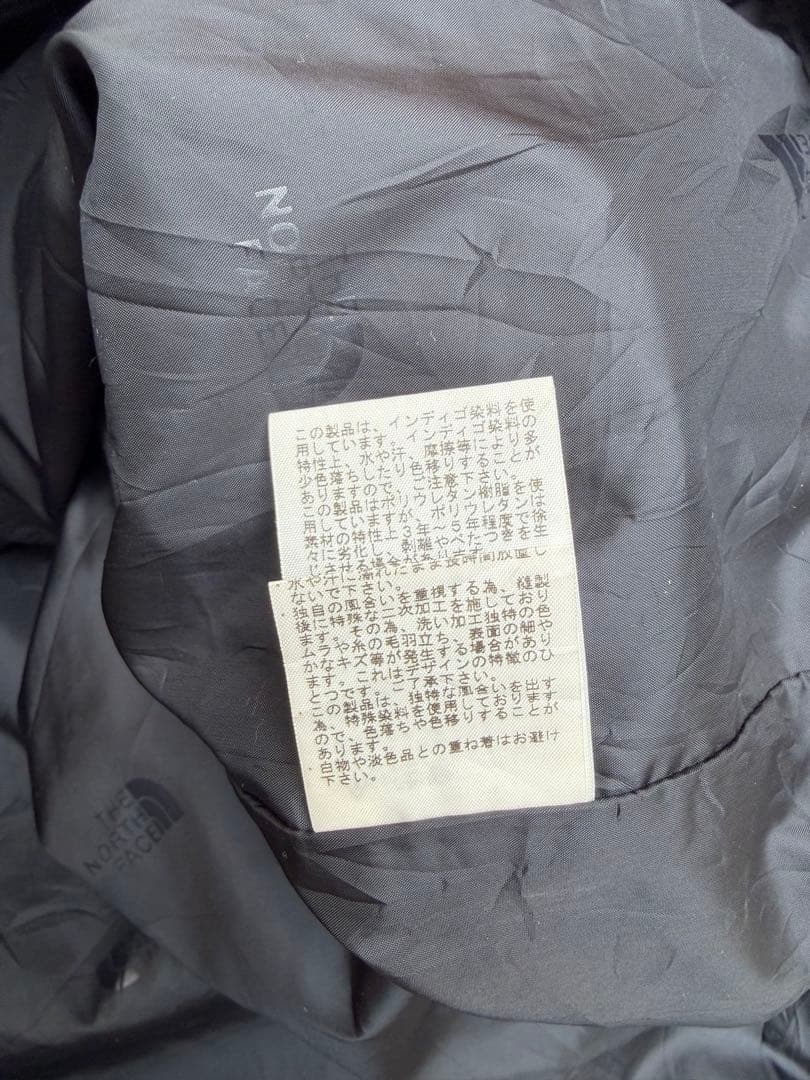 NORTH
FACE
この製品は、インディゴ染料を使
用しています。インディゴ染料の
特性上、水や汗、摩擦等により多
少色落ちしたり、色移りすることが
ありますので、ご注意下さい。
この製品はポリウレタン樹脂を使
用していますが、ポリウレタンは
素材の特性上、3年～5年程度で徐
々に劣化し、剥離やべたつきを生
じさせる場合が
水や汗で濡れたまま長時間放置し
ないで下さい。
独自の風合いを重視する為、縫製
後に特殊な二次加工を施しており
ます。その為、洗い加工独特の色
ムラや、糸の毛羽立ち、表面の細
かなキズ等が発生する場合があり
ますが、これはデザインの特徴のひ
とつです。ご了承下さい。
この製品は、独特な風合いを出す
為、特殊染料を使用しております
ので、色落ちや色移りすることが
あります。
白物や淡色品との重ね着はお避け
下さい。
THE
NORTH
FACE